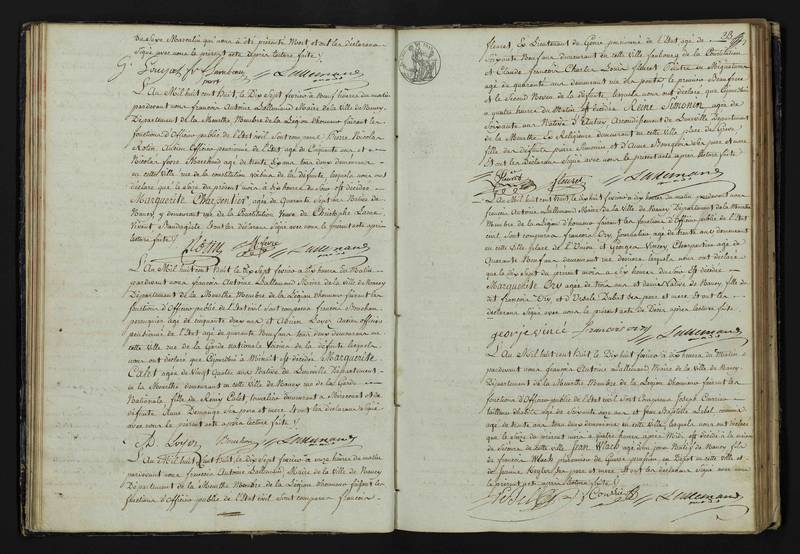 du Sexe Masculin qui nous a été présenté Mort et ont les déclarans
Signé avec nous le présent acte après lecture faite
Lallemand
L'An Mil huit Cent Huit, le Dix Sept février à Neuf heures du matin
pardevant nous françois Antoine Lallemand Maire de la Ville de Nancy
Département de la Meurthe, Membre de la Légion d'honneur faisant les
fonctions d'Officier public de l'Etat civil Sont comparus Pierre Nicolas
Ancien Officier pensionné de l'Etat agé de Cinquante ans et
Nicolas favre Marchand agé de trente Six ans tous deux demeurans
en cette Ville rue de la Constitution voisins de la défunte, lesquels nous ont
déclaré que le Seize du présent mois à dix heures du Soir est décédée
Marguerite Charpentier agée de Quarante Sept ans Native de
Nancy y demeurant rue de la Constitution Veuve de Christophe
Vivant et les déclarans Signé avec nous le présent acte après
lecture faite
Lallemand
L'An Mil huit Cent Huit le Dix Sept février à Dix heures du Matin
pardevant nous françois Antoine Lallemand Maire de la Ville de Nancy
Département de la Meurthe Membre de la Légion d'honneur faisant les
fonctions d'Officier public de l'Etat civil Sont comparus françois Bouchon
perruquier agé de cinquante deux ans et Loyer Ancien officier
pensionné de l'Etat agé de quarante Neuf ans tous deux demeurans en
cette Ville rue de la Garde nationale Voisins de la défunte lesquels
nous ont déclaré que Cejourdhui à Minuit est décédée Marguerite
Calet agée de Vingt Quatre ans Native de Lunéville Département
de la Meurthe demeurant en cette Ville de Nancy rue de la Garde
Nationale, fille de Remy Calet, demeurant a et de
défunte Anne ses père et mère. Et ont les déclarans Signé
avec nous le présent acte après lecture faite
Loyer Bouchon Lallemand
L'An Mil huit Cent Huit, le Dix Sept février à onze heures du matin
pardevant nous françois Antoine Lallemand, Maire de la Ville de Nancy
Département de la Meurthe Membre de la Légion d'honneur faisant les
fonctions d'Officier public de l'Etat civil, Sont comparus françois
23
fleuret, Ex Lieutenant du Génie pensionné de l'Etat agé de
Soixante Neuf ans demeurant en cette Ville faubourg de la Constitution
et Claude françois Charles Louis fleuret Peintre en Mignature
agé de quarante ans demeurant rue le premier Beaufrere
et le Second Neveu de la défunte, lesquels nous ont déclaré, que Cejourdhui
à quatre heures du Matin est décédée Reine Simonin, agée de
Soixante ans Native d' Arrondissement de Lunéville Département
de la Meurthe Ex Religieuse demeurant en cette Ville place de Grève
fille de défunts Simonin et d'Anne ses père et mère
Et ont les Déclarans Signé avec nous le présent acte après lecture faite
fleuret fleuret Lallemand
L'An Mil huit Cent Huit le Dix huit février à dix heures du matin pardevant nous
françois Antoine Lallemand Maire de la Ville de Nancy Département de la Meurthe
Membre de la Légion d'honneur faisant les fonctions d'Officier public de l'Etat
civil, Sont comparus françois agé de trente ans demeurant
en cette Ville place de l'Union et Georges Vincey Charpentier agé de
Quarante Neuf ans demeurant rue lesquels nous ont déclaré
que le dix Sept du présent mois à Six heures du Soir est décédée
Marguerite agée de trois ans et demi Native de Nancy, fille
dudit françois et d'Ursule ses père et mere. Et ont les
déclarans Signé avec nous le présent acte de Décès après lecture faite.
george vincé francois Lallemand
L'An Mil huit Cent Huit, le Dix huit février à dix heures du Matin
pardevant nous françois Antoine Lallemand Maire de la Ville de Nancy
Département de la Meurthe Membre de la Légion d'honneur faisant les
fonctions d'Officier public de l'Etat civil Sont Comparus Joseph
agé de Soixante ans et Jean Baptiste commis
agé de trente ans tous deux demeurans en cette Ville, lesquels nous ont déclaré
que le Seize du présent mois à quatre heures après Midi, est décédé à la maison
de Secours de cette Ville Jean Black agé d'un jour Natif de Nancy fils
de françois Black prisonnier de Guerre prussien au Dépôt en cette Ville et
de Jeanne ses père et mère. Et ont les déclarans Signé avec nous
le présent acte après lecture faite
Lallemand